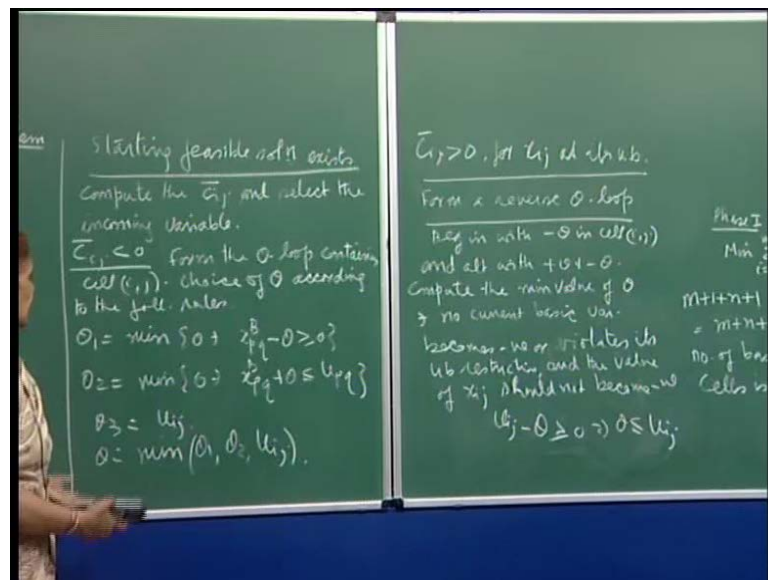 Starting feasible solⁿ exists
Compute the c̄ij and select the
incoming variable.
c̄ij < 0 Form the θ-loop containing
cell (i,j). Choice of θ according
to the foll. rules
θ₁ = min {θ ∋ x^B_pq - θ ≥ 0}
θ₂ = min {θ ∋ x^B_pq + θ ≤ u_pq}
θ₃ = uij
θ = min (θ₁, θ₂, uij).
c̄ij > 0, for xij at its u.b.
Form a reverse θ-loop
Begin with -θ in cell (i,j)
and alt with +θ & -θ.
Compute the min value of θ
∋ no current basic var.
becomes -ve or violates its
ub restriction, and the value
of xij should not become -ve
uij - θ ≥ 0 ⇒ θ ≤ uij
Phase I
Min
m+1+n+1
= m+n+
no. of
Cells is